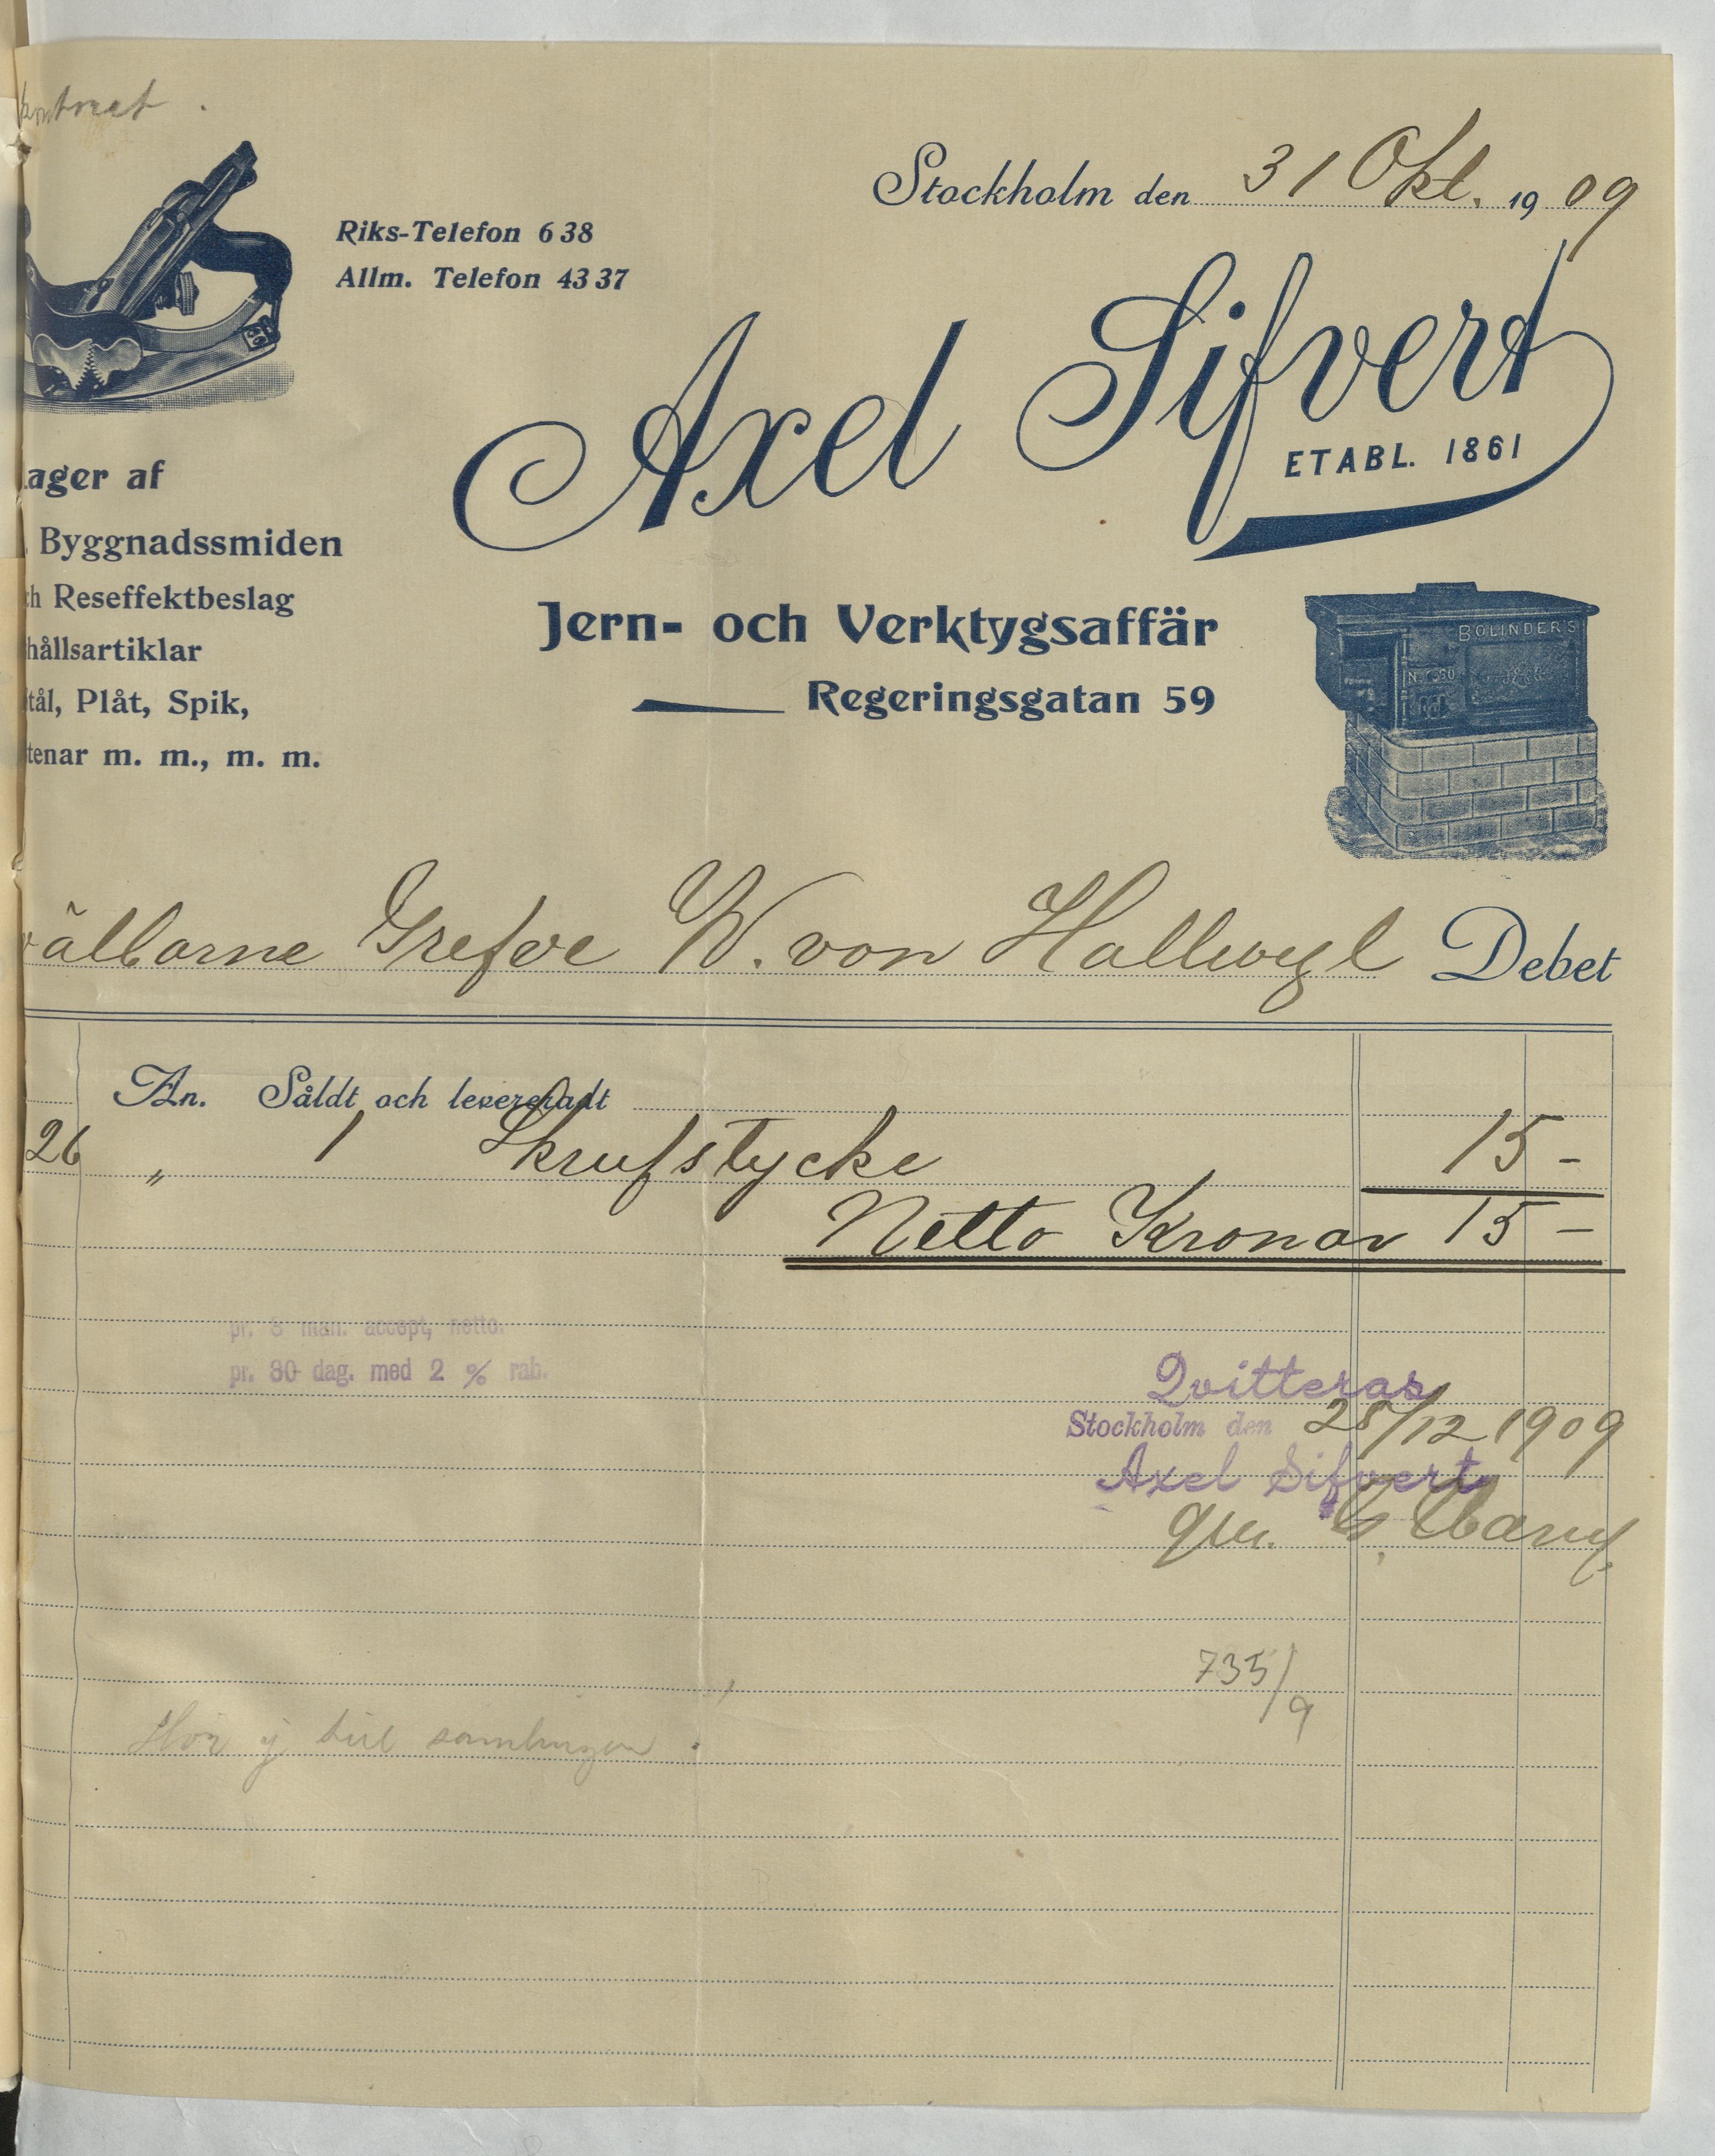 Stockholm den 31 Okt. 1909
Riks-Telefon 638
Allm. Telefon 4337
Axel Sifvert
ETABL. 1861
ager af
Byggnadssmiden
ch Reseffektbeslag
hållsartiklar
tål, Plåt, Spik,
tenar m. m., m. m.
Jern- och Verktygsaffär
Regeringsgatan 59
BOLINDER'S
älborne Grefve W. von Hallwyl Debet
An. Såldt och levereradt
26 " 1 Skrufstycke 15 -
Netto Kronor 15 -
pr. 3 mån. accept, netto.
pr. 30 dag. med 2 % rab.
Qvitteras
Stockholm den 28/12 1909
Axel Sifvert
735/9
Hör ej till samlingen.